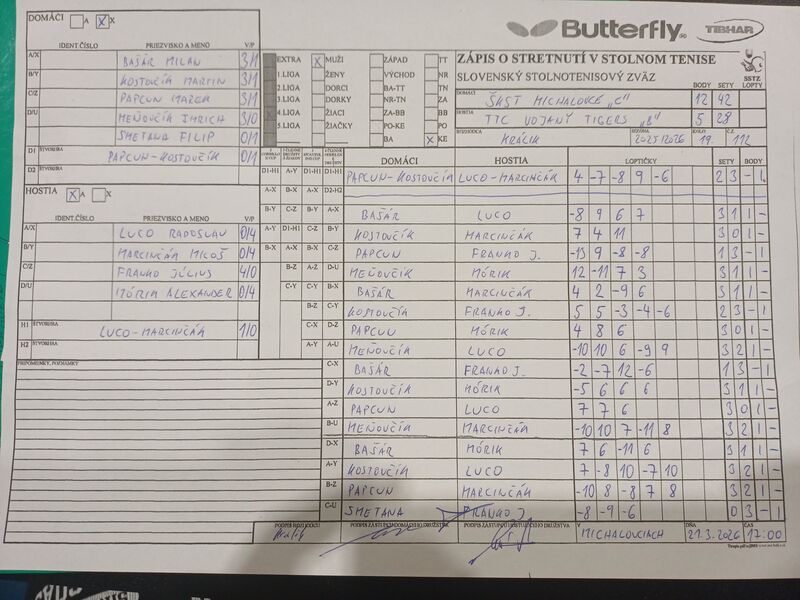 DOMÁCI A X
IDENT.ČÍSLO PRIEZVISKO A MENO V/P
A/X BAŠÁR MILAN 3/1
B/Y KOSTOVČÍK MARTIN 3/1
C/Z PAPCUN MAREK 3/1
D/U MEŇOVČÍK IMRICH 3/0
SMETANA FILIP 0/1
D1 ŠTVORHRA PAPCUN-KOSTOVČÍK 0/1
D2
HOSTIA A X
IDENT.ČÍSLO PRIEZVISKO A MENO V/P
A/X LUCO RADOSLAV 0/4
B/Y MARCINČÁK MILOŠ 0/4
C/Z FRANKO JÚLIUS 4/0
D/U MÓRIK ALEXANDER 0/4
H1 ŠTVORHRA LUCO-MARCINČÁK 1/0
H2 ŠTVORHRA
PRIPOMIENKY, POZNÁMKY
Butterfly TIBHAR
EXTRA X MUŽI ZÁPAD TT
1.LIGA ŽENY VÝCHOD NR
2.LIGA DORCI BA-TT TN
3.LIGA DORKY NR-TN ZA
4.LIGA ŽIACI ZA-BB BB
5.LIGA ŽIAČKY PO-KE PO
BA X KE
ZÁPIS O STRETNUTÍ V STOLNOM TENISE
SLOVENSKÝ STOLNOTENISOVÝ ZVÄZ
SSTZ
BODY SETY LOPTY
DOMÁCI ŠKST MICHALOVCE "C" 12 42
HOSTIA TTC VOJANY TIGERS "B" 5 28
ROZHODCA KRÁLIK SEZÓNA 2025/2026 KOLO 19. Č.Z. 112
DOMÁCI HOSTIA LOPTIČKY SETY BODY
D1-H1 A-Y D1-H1 D1-H1 PAPCUN-KOSTOVČÍK LUCO-MARCINČÁK 4 -7 -8 9 -6 2 3 - 1
A-X B-X A-X D2-H2
B-Y C-Z B-Y A-X BAŠÁR LUCO -8 9 6 7 3 1 1 -
A-Y D1-H1 C-Z B-Y KOSTOVČÍK MARCINČÁK 7 4 11 3 0 1 -
B-X A-X D1-X C-Z PAPCUN FRANKO J. -13 9 -8 -8 1 3 - 1
B-Z A-Z D-U MEŇOVČÍK MÓRIK 12 -11 7 3 3 1 1 -
C-Y C-Y B-X BAŠÁR MARCINČÁK 4 2 -9 6 3 1 1 -
B-Z C-Y KOSTOVČÍK FRANKO J. 5 5 -3 -4 -6 2 3 - 1
C-X D-Z PAPCUN MÓRIK 4 8 6 3 0 1 -
A-Y A-U MEŇOVČÍK LUCO -10 10 6 -9 9 3 2 1 -
C-X BAŠÁR FRANKO J. -2 -7 12 -6 1 3 - 1
D-Y KOSTOVČÍK MÓRIK -5 6 6 6 3 1 1 -
A-Z PAPCUN LUCO 7 7 6 3 0 1 -
B-U MEŇOVČÍK MARCINČÁK -10 10 7 -11 8 3 2 1 -
D-X BAŠÁR MÓRIK 7 6 -11 6 3 1 1 -
A-Y KOSTOVČÍK LUCO 7 -8 10 -7 10 3 2 1 -
B-Z PAPCUN MARCINČÁK -10 8 -8 7 8 3 2 1 -
C-U SMETANA FRANKO J. -8 -9 -6 0 3 - 1
PODPIS ROZHODCU PODPIS ZÁSTUPCU DOMÁCEHO DRUŽSTVA PODPIS ZÁSTUPCU HOSŤUJÚCEHO DRUŽSTVA V MICHALOVCIACH DŇA 21.3.2026 ČAS 17:00